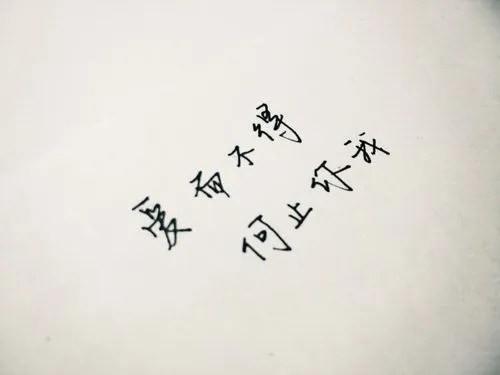 爱而不得
何止你我